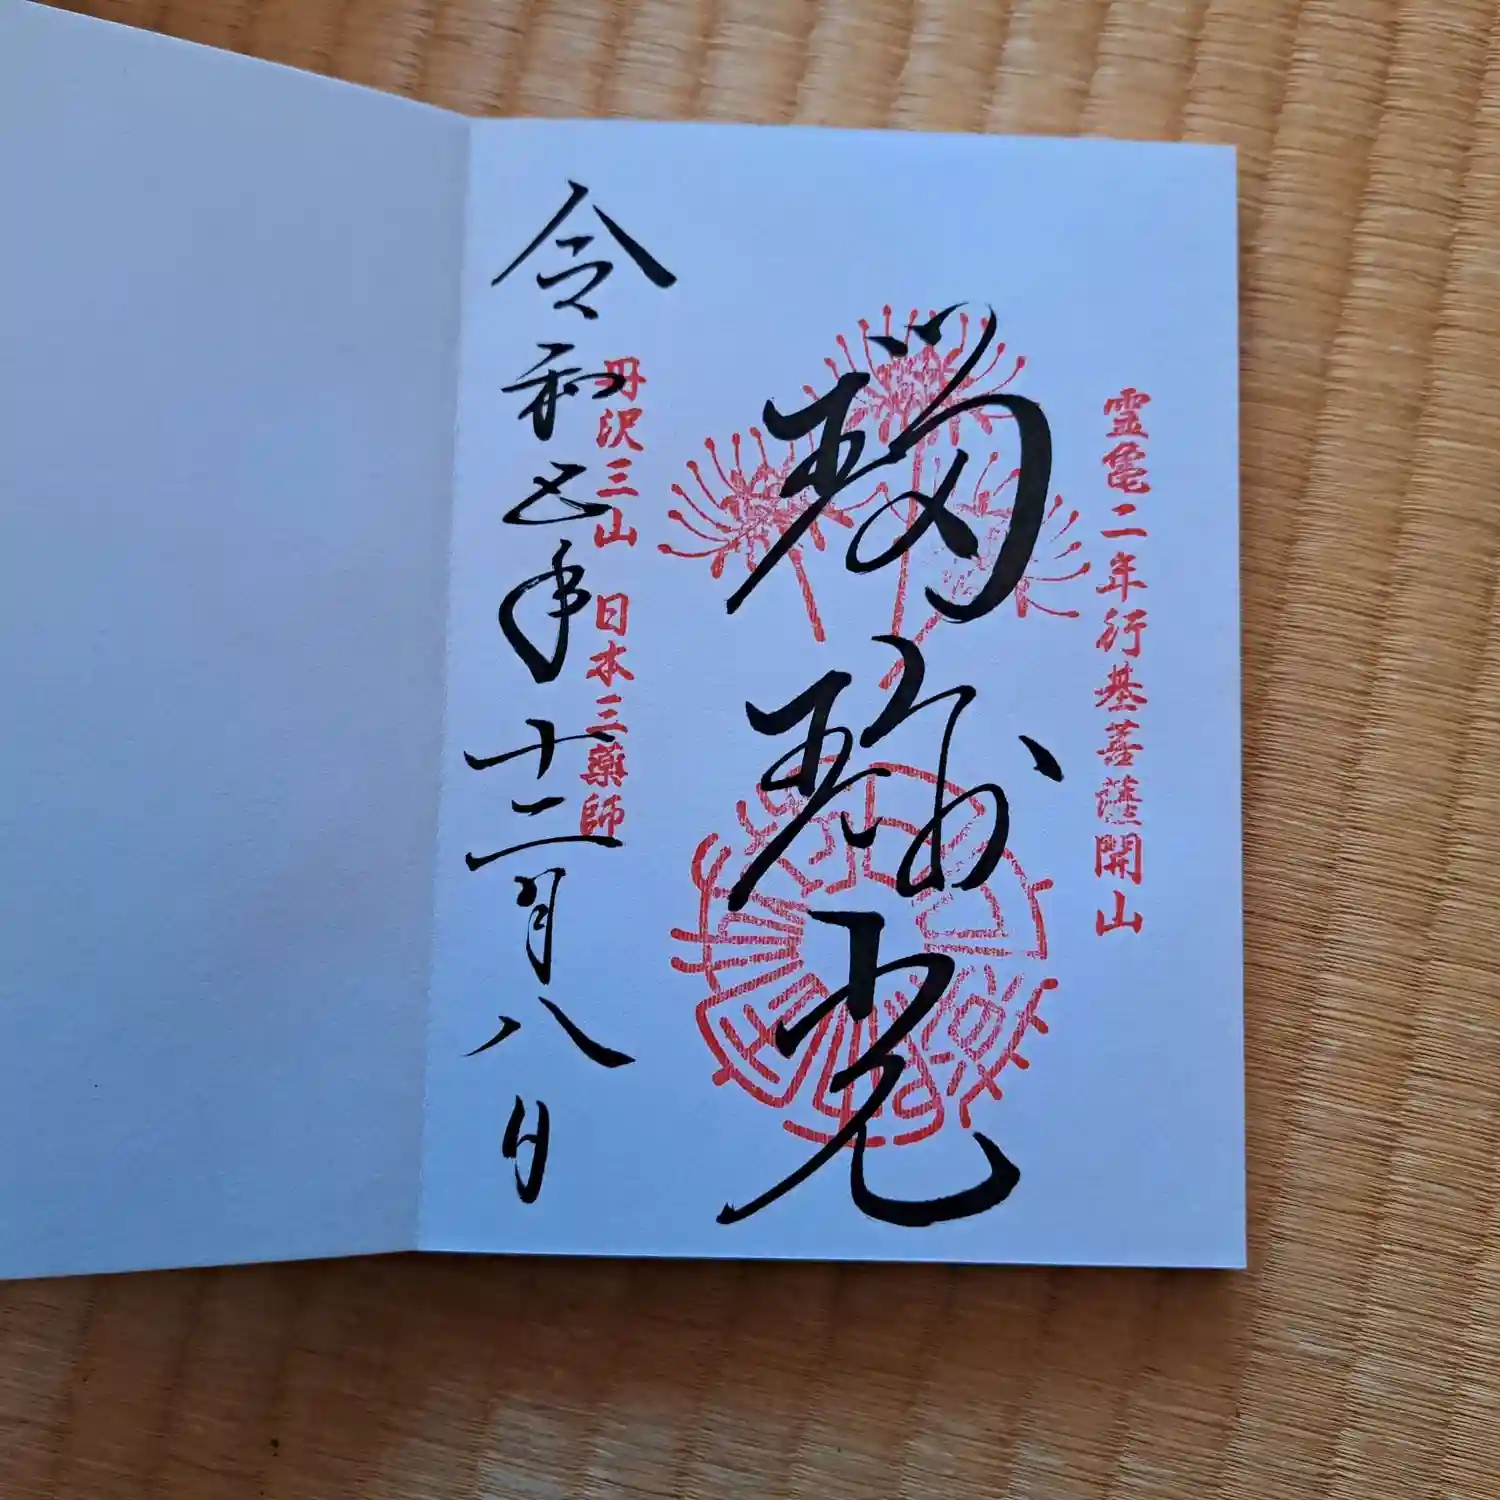 霊亀二年行基菩薩開山
瑠璃光
丹沢三山 日本三薬師
令和五年十二月八日